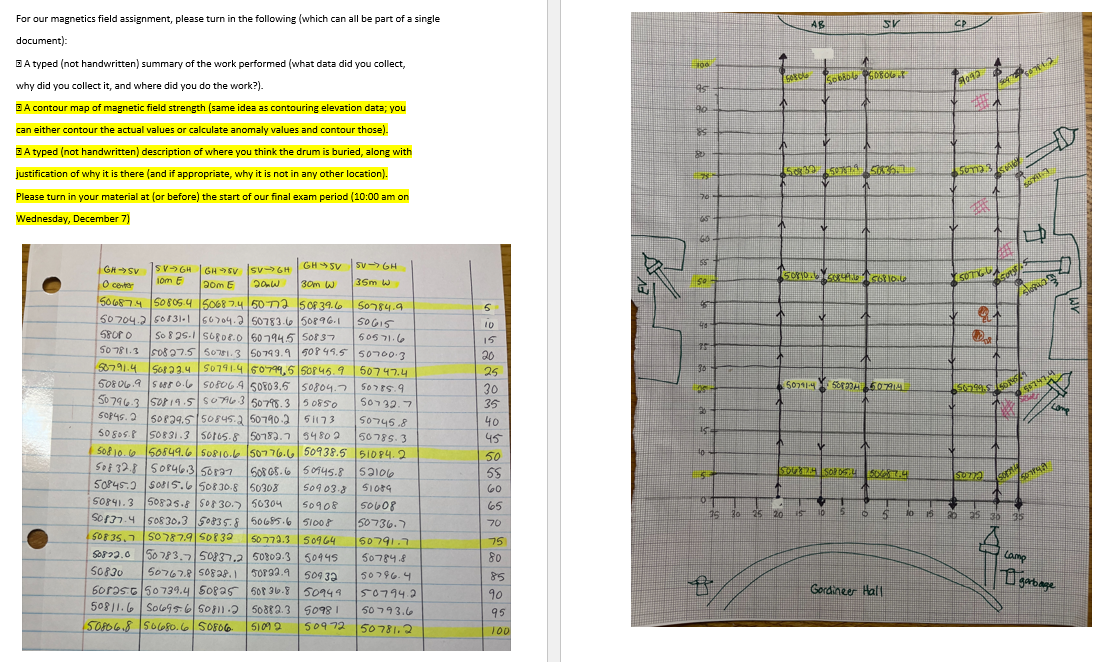 For our magnetics field assignment, please turn in the following (which can all be part of a single
document):
A typed (not handwritten) summary of the work performed (what data did you collect,
why did you collect it, and where did you do the work?).
A contour map of magnetic field strength (same idea as contouring elevation data; you
can either contour the actual values or calculate anomaly values and contour those).
A typed (not handwritten) description of where you think the drum is buried, along with
justification of why it is there (and if appropriate, why it is not in any other location).
Please turn in your material at (or before) the start of our final exam period (10:00 am on
Wednesday, December 7)
GH→SV SV→GH GH→SV SV→GH GH→SV SV→GH
0 center 10m E 20m E 20m W 30m W 35m W
50687.4 50805.4 50687.4 50772 50839.6 50784.9 5
50704.2 50831.1 50704.2 50783.6 50896.1 50615 10
50808.0 50794.5 50837 50571.6 15
50781.3 50827.5 50781.3 50793.9 50849.5 50700.3 20
50791.4 50823.4 50791.4 50799.5 50845.9 50747.4 25
50806.9 50806.9 50803.5 50804.7 50785.9 30
50796.3 50819.5 50796.3 50798.3 50850 50732.7 35
50845.2 50824.5 50845.2 50790.2 51173 50745.8 40
50805.8 50831.3 50805.8 50782.7 54802 50785.3 45
50810.6 50849.6 50810.6 50776.6 50938.5 51084.2 50
50832.8 50846.3 50827 50808.6 50945.8 52106 55
50845.2 50815.6 50830.8 50308 50903.8 51089 60
50841.3 50825.8 50830.7 50304 50908 50608 65
50837.4 50830.3 50835.8 50685.6 51008 50736.7 70
50835.7 50787.9 50832 50772.3 50964 50791.7 75
50822.0 50783.7 50837.2 50802.3 50945 50784.8 80
50830 50767.8 50828.1 50822.9 50932 50786.4 85
50825.6 50739.4 50825 50836.8 50949 50794.2 90
50811.6 50695.6 50811.2 50882.3 50981 50793.6 95
50806.8 50680.6 50806 51092 50972 50781.2 100
AB SV CP
100 50806 50680.6 50806.8 51092 50781.2
95
90
85
80
75 50832 50787.9 50835.7 50772.3 50964 50791.7
70
65
60
55
50 50810.6 50849.6 50810.6 50776.6
45
40
35
30
25 50791.4 50823.4 50791.4 50799.5 50845.9 50747.4
20
15
10
5 50687.4 50805.4 50687.4 50772
0
35 30 25 20 15 10 5 0 5 10 15 20 25 30 35
WY
Lamp
Lamp
garbage
Gardineer Hall